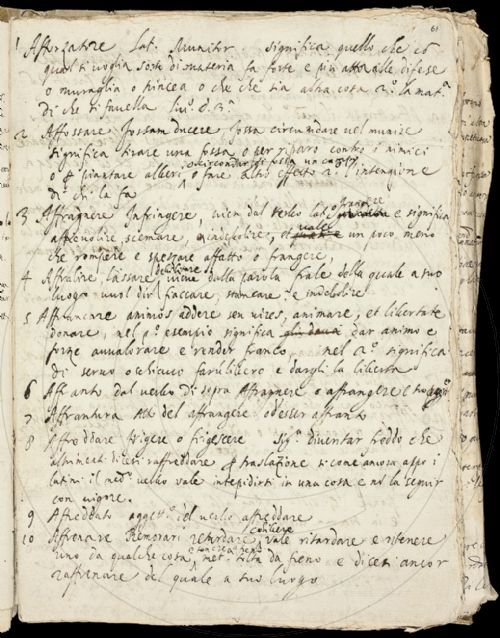 61
1 Afforzatore Lat. Munitor significa quello che co
qual si voglia sorte di materia fa forte e più atta alle difese
o muraglia o trincea o che che sia altra cosa 2.º la mat.ª
di che si favella
2 Affossare fossam ducere, fossa circundare vel munire
significa tirare una fossa o per riparo contro i nimici
o circondar di fossa un
o p piantare alberi o fare altro effetto 2.º l'intenzione
di chi la fa
3 Affragnere infringere, vien dal verbo lat. e significa
affrangere
affievolire, scemare, indebolire, et un poco meno
vale
che rompere e spezzare affatto o frangere,
4 Affralire, lassare, viene dalla parola frale della quale a suo
debilitare
luogo vuol dir fiaccare, stancare e indebolire
5 Affrancare animos addere seu vires, animare, et libertate
donare, nel p.º esempio significa dar animo e
forze avvalorare e render franco, nel 2.º significa
di servo o schiavo farlo libero e dargli la libertà
6 Affranto dal verbo di sopra Affragnere o affrangere
7 Affrantura del affrangere od esser affranto
8 Affreddare frigere o frigescere Sig.ª diventar freddo che
altrimenti dicesi raffreddare p traslazione si come ancora appr. i
latini il med.º verbo vale intepidirsi in una cosa e nō la seguir
con vigore.
9 Affreddato aggett.º del verbo affreddare
10 Affrenare Remorari retardare, vale ritardare e ritenere
cohibere
uno da qualche cosa, met. tolta da freno e dicesi ancor
raffrenare del quale a suo luogo